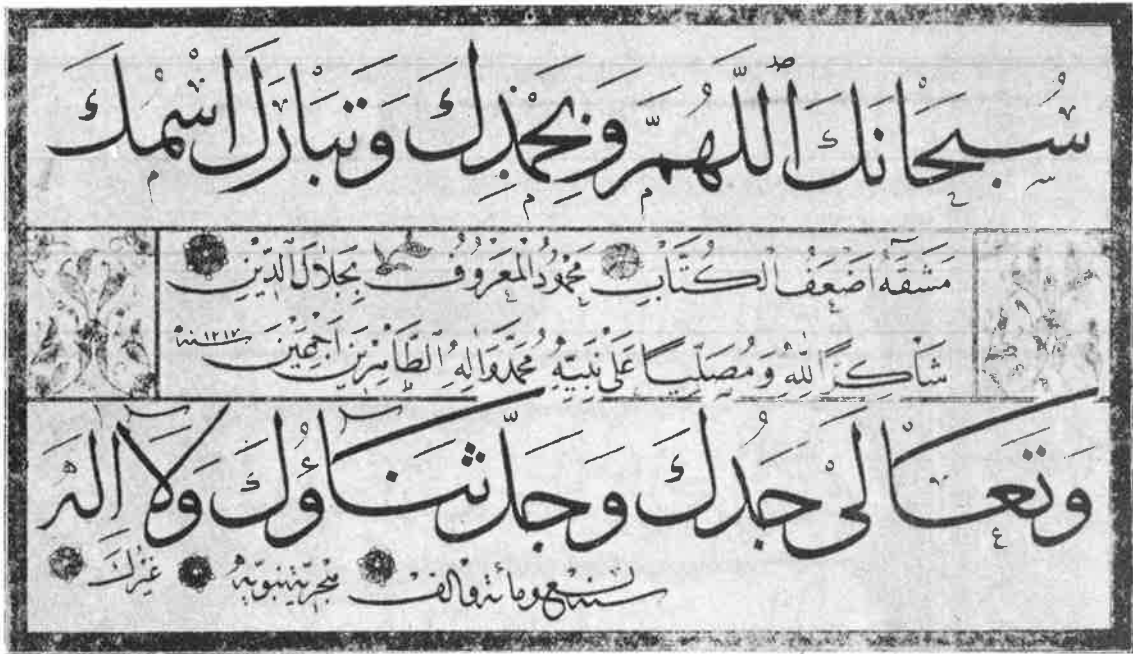 سُبْحَانَكَ اللّٰهُمَّ وَبِحَمْدِكَ وَتَبَارَكَ اسْمُكَ
مَشَقَهُ اَضْعَفُ الْكُتَّابِ مَحْمُودُ الْمَعْرُوفِ بِجَلَالِ الدِّينِ
شَاكِرًا لِلّٰهِ وَمُصَلِّيًا عَلَى نَبِيِّهِ مُحَمَّدٍ وَاٰلِهِ الطَّاهِرِينَ اَجْمَعِينَ سنة ١٢١٧
وَتَعَالَى جَدُّكَ وَجَلَّ ثَنَاؤُكَ وَلَا اِلٰهَ
ومائة والف هجرية نبوية غَيْرُكَ